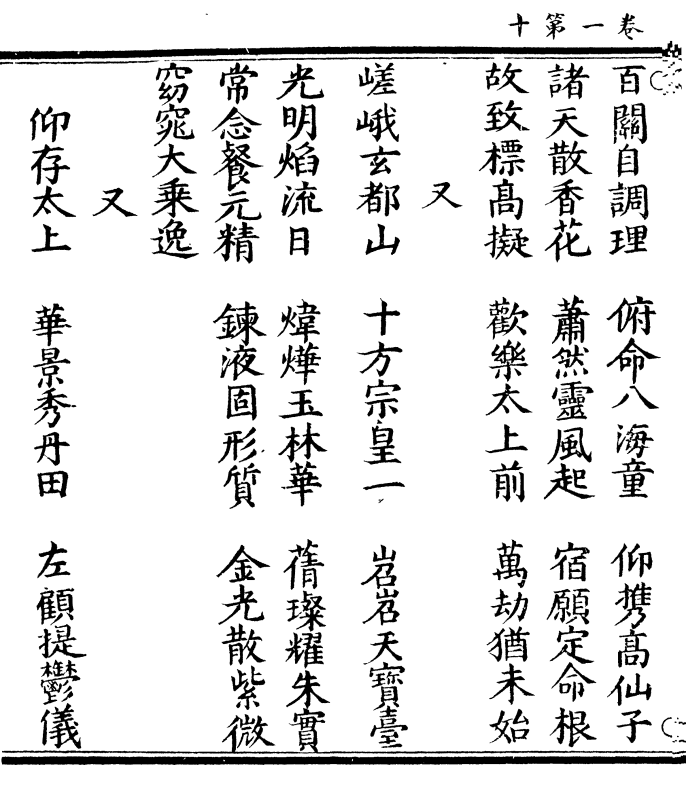 卷一第十
百關自調理　俯命八海童　仰携高仙子
諸天散香花　蕭然靈風起　宿願定命根
故致標高擬　歡樂太上前　萬劫猶未始
又
嵯峨玄都山　十方宗皇一　岧岧天寶臺
光明焰流日　煒燁玉林華　蒨璨耀朱實
常念餐元精　鍊液固形質　金光散紫微
窈窕大乘逸
又
仰存太上　華景秀丹田　左顧提鬱儀